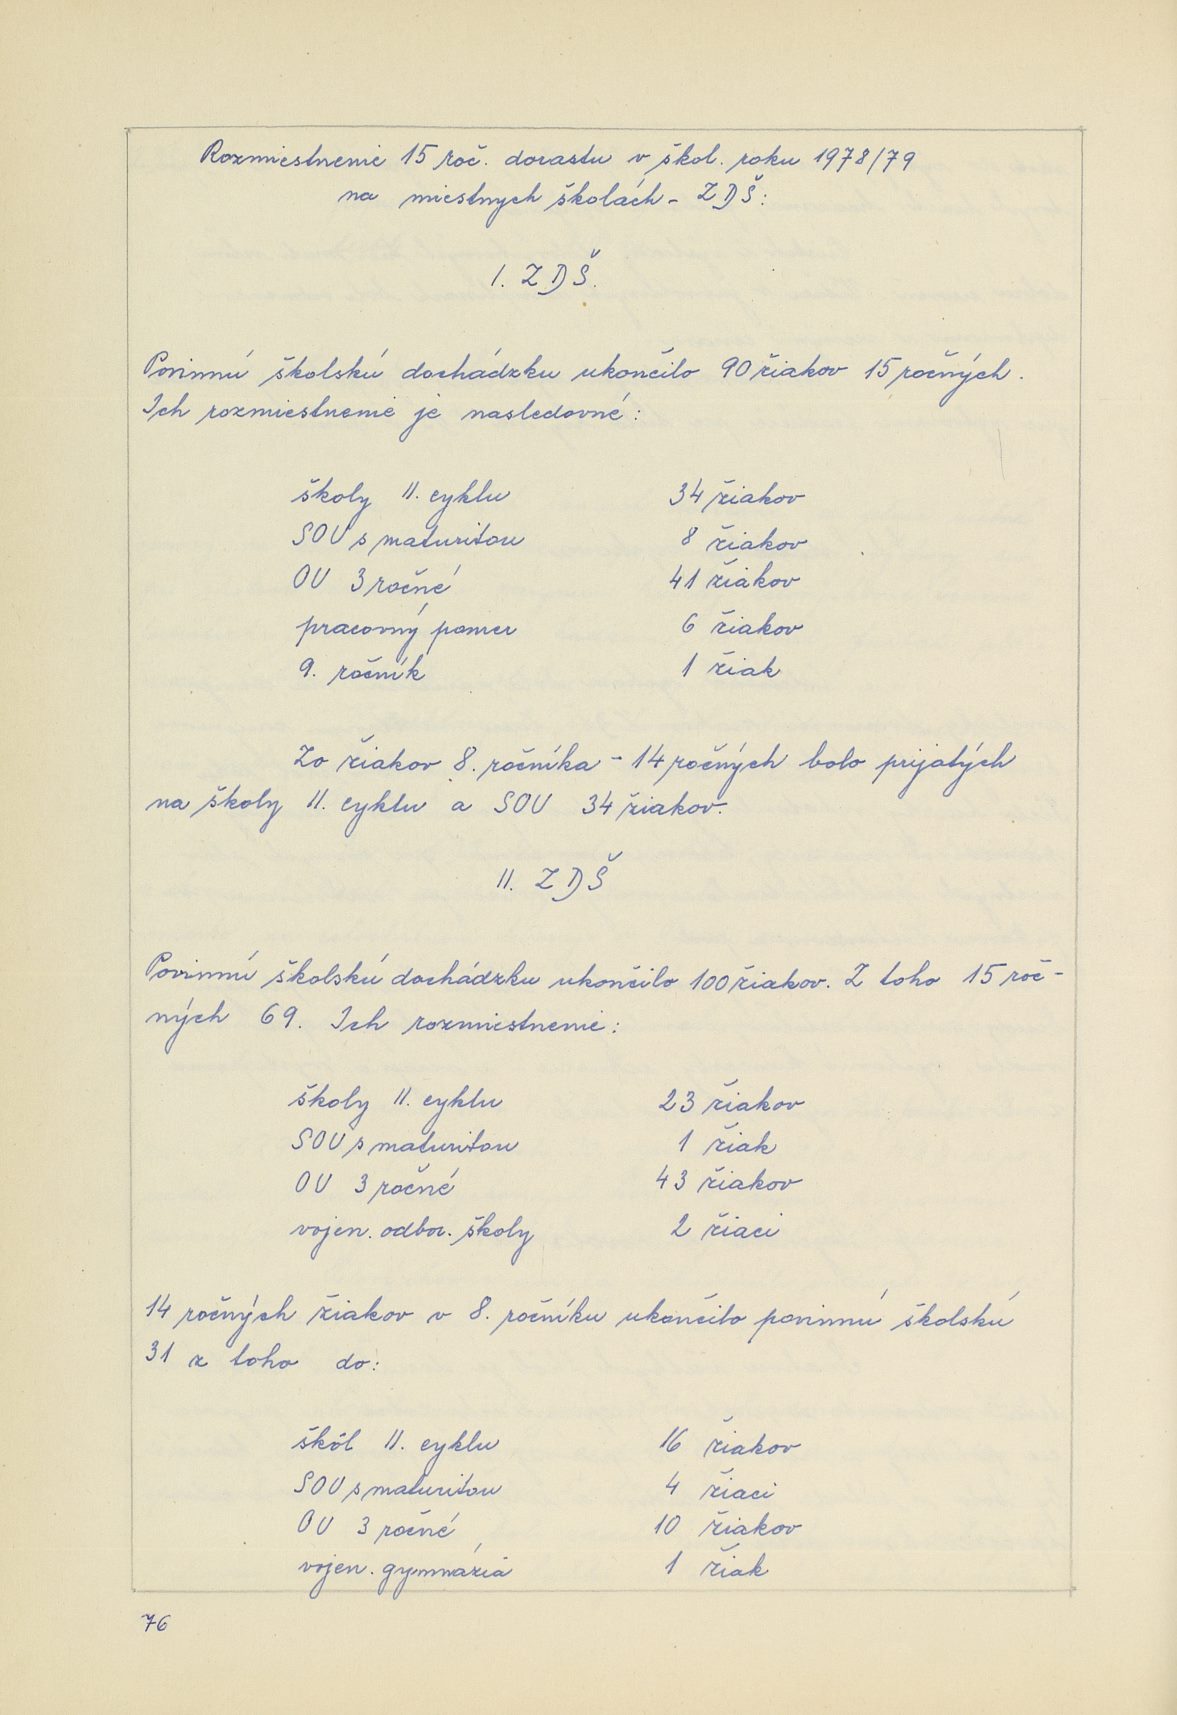 Rozmiestnenie 15 roč. dorastu v škol. roku 1978/79
na miestnych školách - ZDŠ:
I. ZDŠ.
Povinnú školskú dochádzku ukončilo 90 žiakov 15 ročných.
Ich rozmiestnenie je nasledovné:
školy II. cyklu 34 žiakov
SOU s maturitou 8 žiakov
OU 3 ročné 41 žiakov
pracovný pomer 6 žiakov
9. ročník 1 žiak
Zo žiakov 8. ročníka - 14 ročných bolo prijatých
na školy II. cyklu a SOU 34 žiakov.
II. ZDŠ
Povinnú školskú dochádzku ukončilo 100 žiakov. Z toho 15 roč-
ných 69. Ich rozmiestnenie:
školy II. cyklu 23 žiakov
SOU s maturitou 1 žiak
OU 3 ročné 43 žiakov
vojen. odbor. školy 2 žiaci
14 ročných žiakov v 8. ročníku ukončilo povinnú školskú
31 z toho do:
škôl II. cyklu 16 žiakov
SOU s maturitou 4 žiaci
OU 3 ročné 10 žiakov
vojen. gymnázia 1 žiak
76